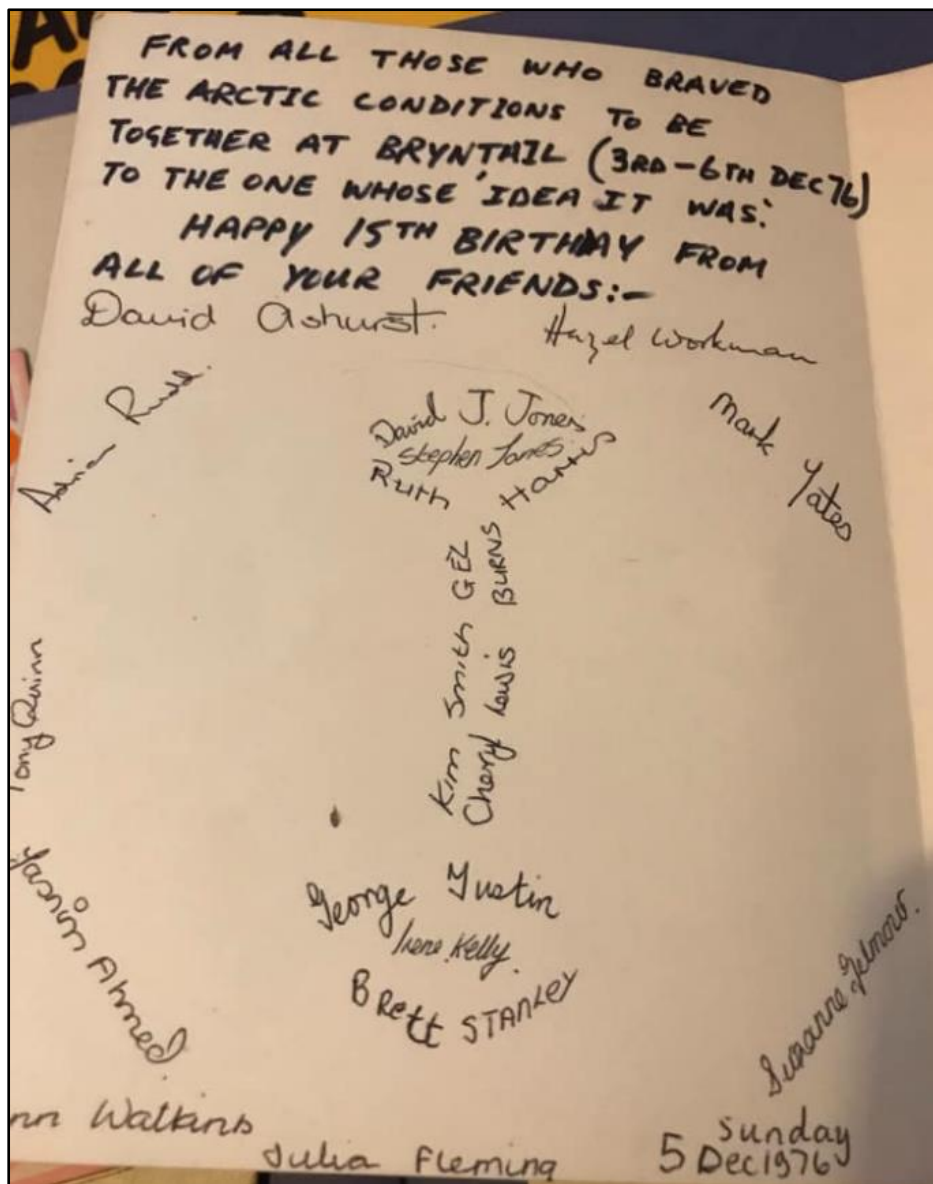 FROM ALL THOSE WHO BRAVED
THE ARCTIC CONDITIONS TO BE
TOGETHER AT BRYNTAIL (3RD-6TH DEC 76)
TO THE ONE WHOSE 'IDEA IT WAS:'
HAPPY 15TH BIRTHDAY FROM
ALL OF YOUR FRIENDS:-
David Ashurst.
Hazel Workman
Adrian
David J. Jones
Stephen Jones
Ruth Harris
Mark Yates
GEZ BURNS
Kim Smith
Cheryl Lewis
Tony Quinn
George Justin
Irene Kelly.
Brett STANLEY
Yasnim Ahmed.
Watkins
Julia Fleming
Sunday
5 Dec 1976